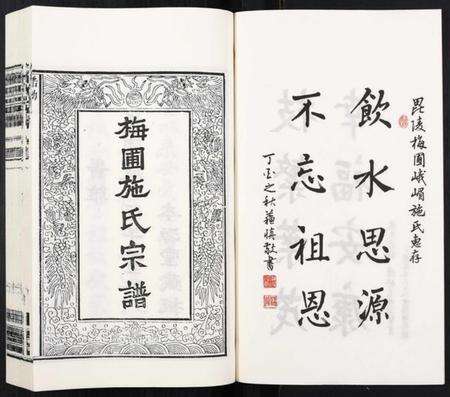 毘陵梅圃峨嵋施氏惠存
飲水思源
不忘祖恩
丁亥之秋蘇慎敬書
梅圃施氏宗譜